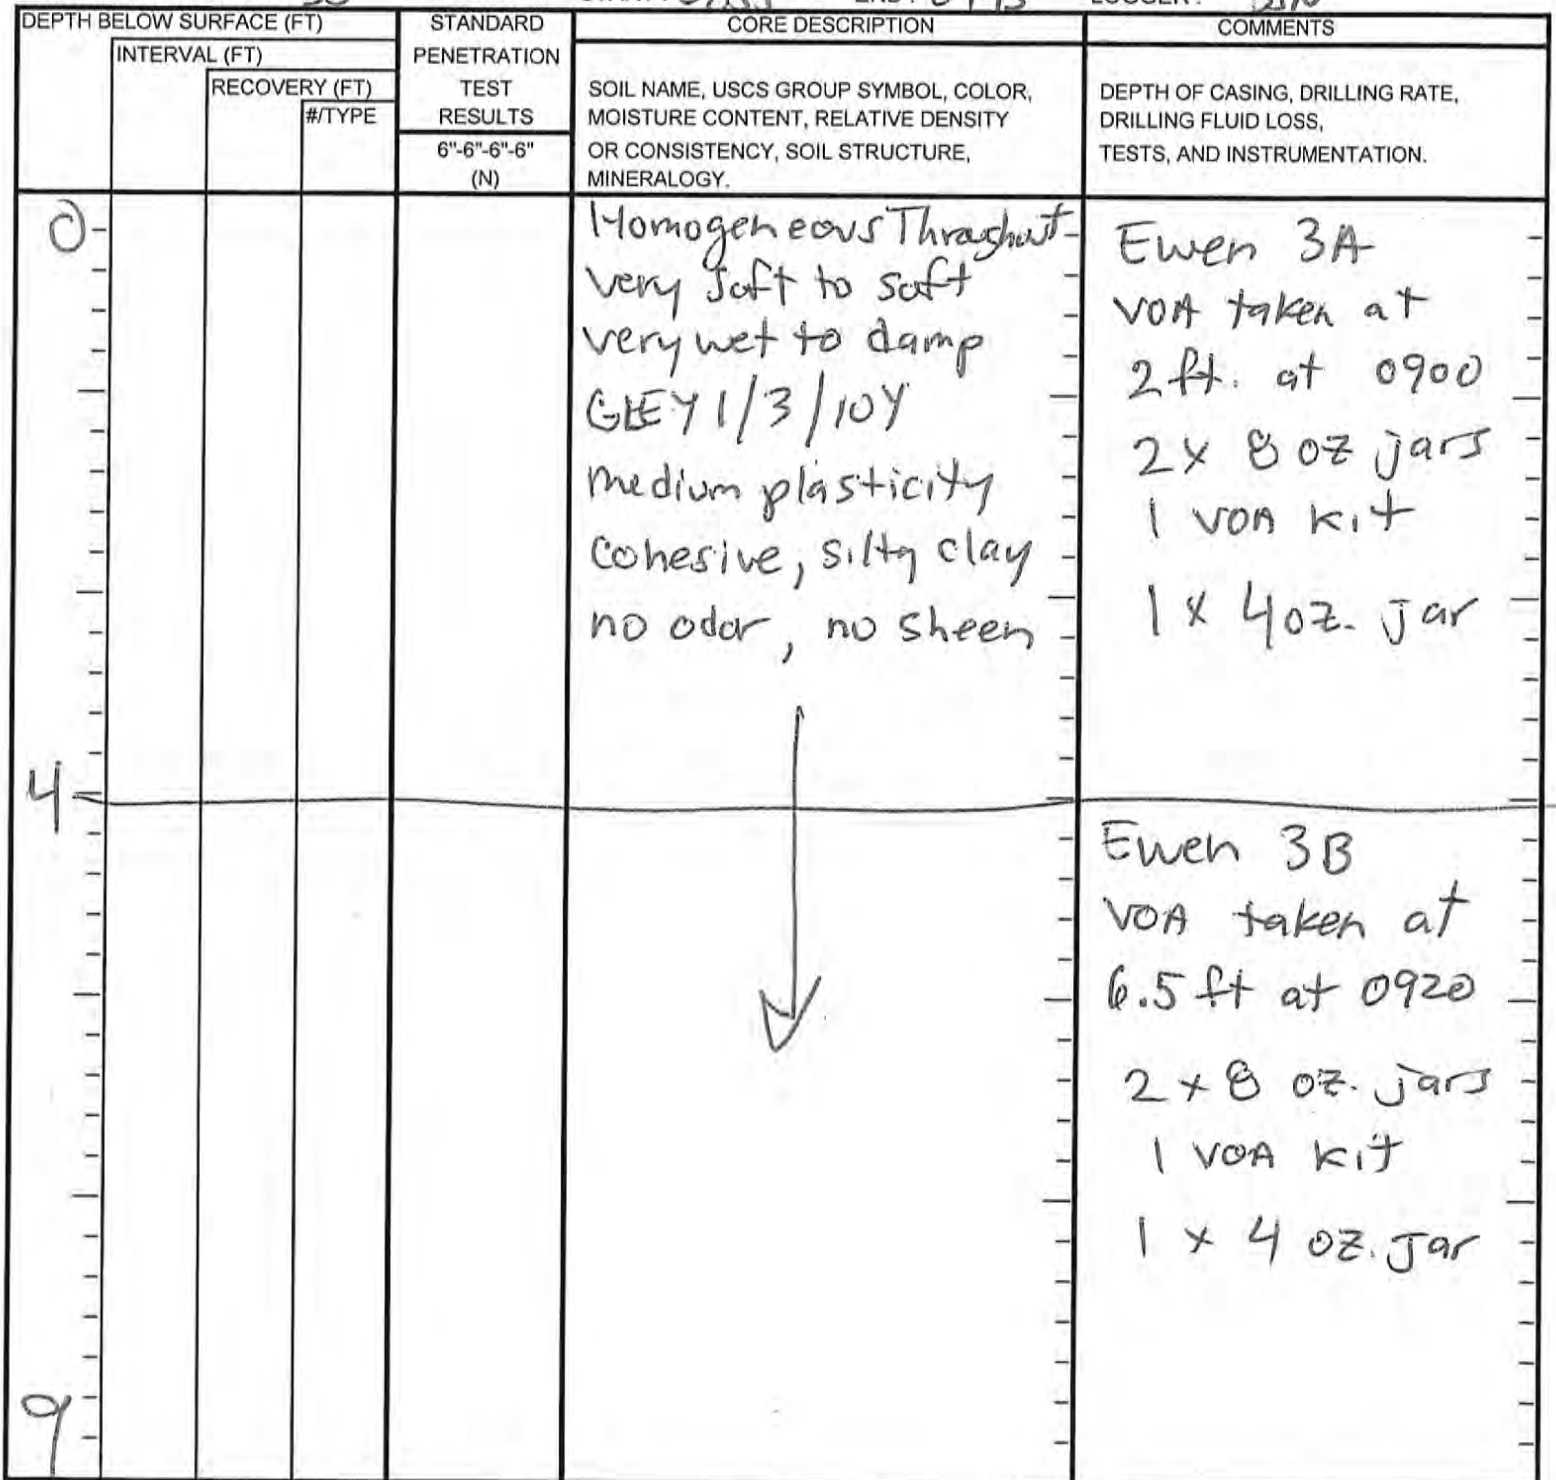 DEPTH BELOW SURFACE (FT)
INTERVAL (FT)
RECOVERY (FT)
#/TYPE
STANDARD
PENETRATION
TEST
RESULTS
6"-6"-6"-6"
(N)
CORE DESCRIPTION
SOIL NAME, USCS GROUP SYMBOL, COLOR,
MOISTURE CONTENT, RELATIVE DENSITY
OR CONSISTENCY, SOIL STRUCTURE,
MINERALOGY.
COMMENTS
DEPTH OF CASING, DRILLING RATE,
DRILLING FLUID LOSS,
TESTS, AND INSTRUMENTATION.
0
Homogeneous Throughout
very soft to soft
very wet to damp
GLEY 1/3/10Y
medium plasticity
cohesive, silty clay
no odor, no sheen
Ewen 3A
VOA taken at
2 ft. at 0900
2x 8 oz jars
1 VOA kit
1 x 4oz. jar
4
Ewen 3B
VOA taken at
6.5 ft at 0920
2 x 8 oz. jars
1 VOA kit
1 x 4 oz. Jar
9